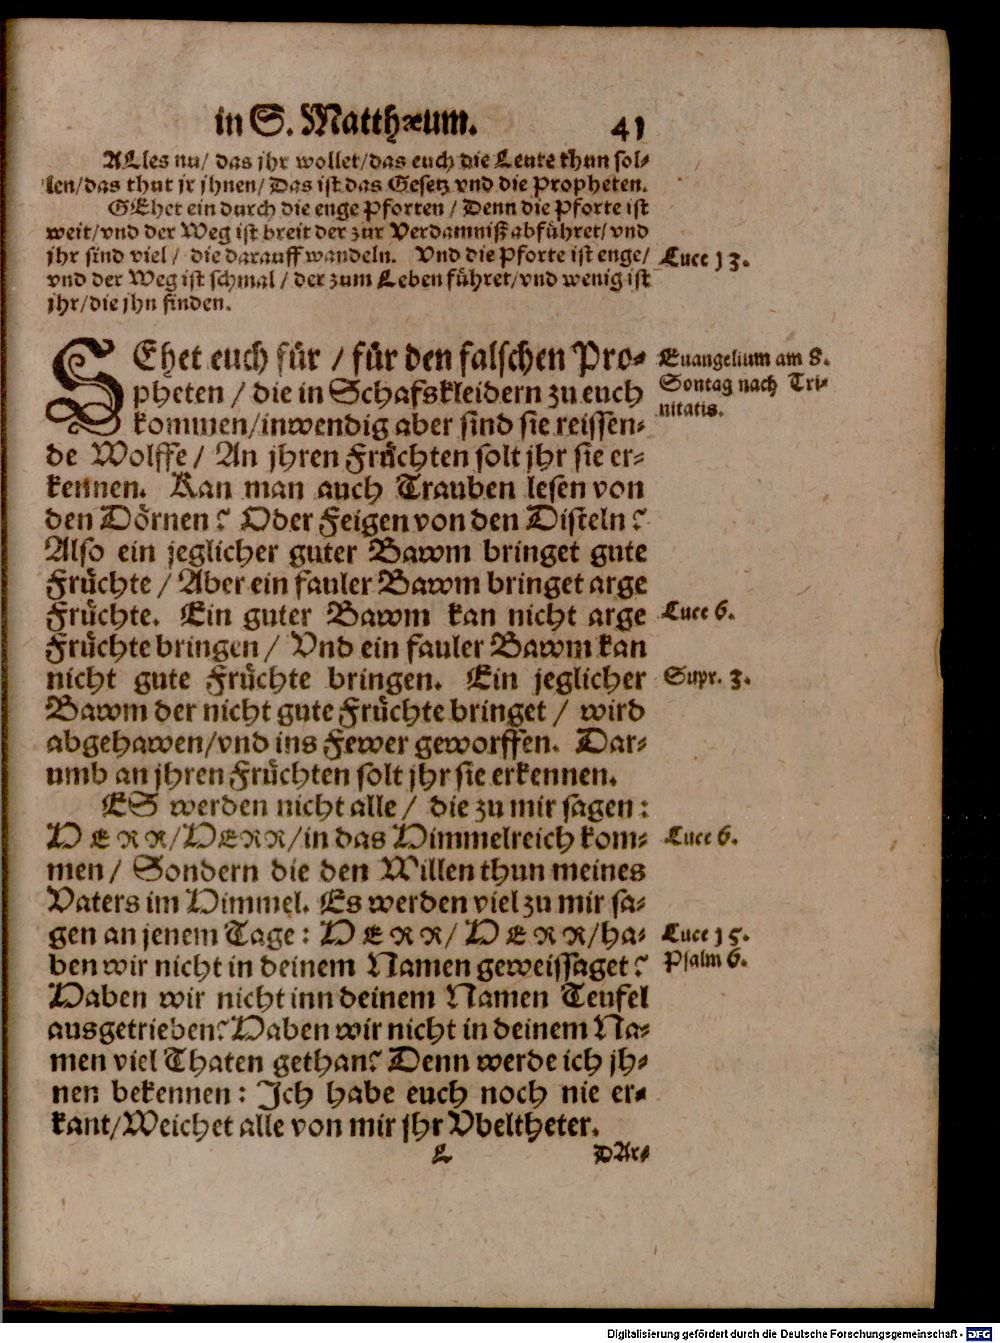 in S. Matthæum. 41
ALles nu/ das jhr wollet/das euch die Leute thun sol⸗
len/das thut jr jhnen/ Das ist das Gesetz vnd die Propheten.
GEhet ein durch die enge Pforten / Denn die Pforte ist
weit/vnd der Weg ist breit der zur Verdamniß abführet/vnd
jhr sind viel / die darauff wandeln. Vnd die Pforte ist enge/
Luce 13.
vnd der Weg ist schmal / der zum Leben führet/vnd wenig ist
jhr/die jhn finden.
SEhet euch für / für den falschen Pro⸗
Euangelium am 8.
Sontag nach Tri⸗
nitatis.
pheten / die in Schafskleidern zu euch
kommen/inwendig aber sind sie reissen⸗
de Wolffe / An jhren Früchten solt jhr sie er⸗
kennen. Kan man auch Trauben lesen von
den Dörnen? Oder Feigen von den Disteln?
Also ein jeglicher guter Bawm bringet gute
Früchte / Aber ein fauler Bawm bringet arge
Früchte. Ein guter Bawm kan nicht arge
Luce 6.
Früchte bringen / Vnd ein fauler Bawm kan
nicht gute Früchte bringen. Ein jeglicher
Supr. 3.
Bawm der nicht gute Früchte bringet / wird
abgehawen/vnd ins Fewer geworffen. Dar⸗
umb an jhren Früchten solt jhr sie erkennen.
ES werden nicht alle / die zu mir sagen:
HERR/HERR/in das Himmelreich kom⸗
Luce 6.
men / Sondern die den Willen thun meines
Vaters im Himmel. Es werden viel zu mir sa⸗
gen an jenem Tage: HERR/ HERR/ha⸗
Luce 15.
ben wir nicht in deinem Namen geweissaget?
Psalm 6.
Haben wir nicht inn deinem Namen Teufel
ausgetrieben? Haben wir nicht in deinem Na⸗
men viel Thaten gethan? Denn werde ich jh⸗
nen bekennen: Ich habe euch noch nie er⸗
kant/Weichet alle von mir jhr Vbeltheter.
L DAr⸗
Digitalisierung gefördert durch die Deutsche Forschungsgemeinschaft - DFG